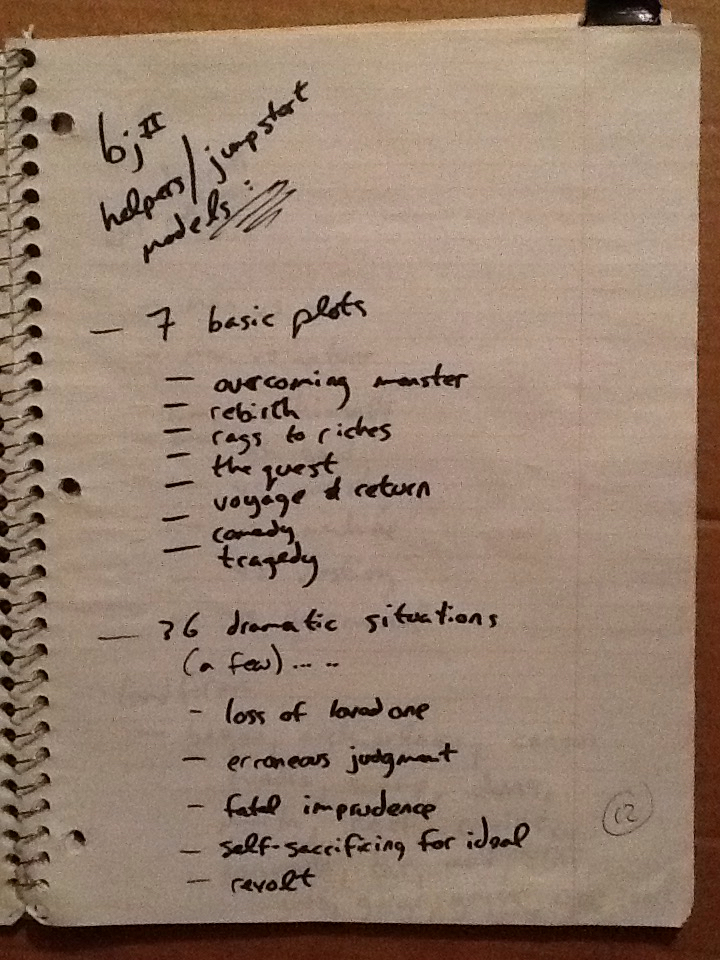 bj II
helpers/jumpstart
models:
— 7 basic plots
— overcoming monster
— rebirth
— rags to riches
— the quest
— voyage & return
— comedy
— tragedy
— 36 dramatic situations
(a few).....
- loss of loved one
- erroneous judgment
- fatal imprudence
- self-sacrificing for ideal
- revolt
12